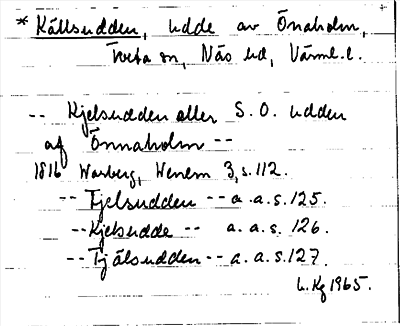 * Källsudden, udde av Önaholm,
Tveta sn, Näs hd, Värml. l.
-- Kjelsudden eller S. O. udden
af Önnaholm --
1816 Warberg, Wenern 3, s. 112.
-- Tjelsudden -- a. a. s. 125.
-- Kjelsudde -- a. a. s. 126.
-- Tjälsudden -- a. a. s. 127.
L. Kg 1965.